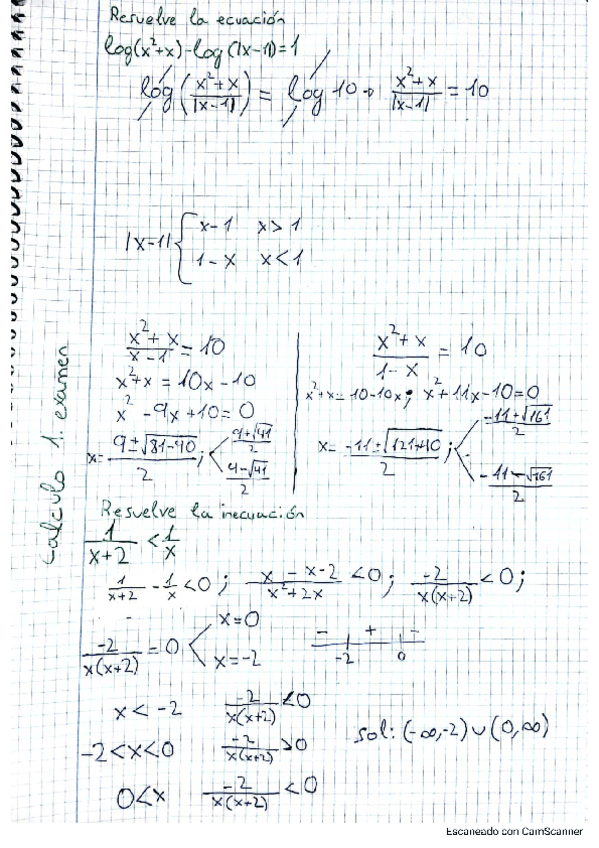 Resuelve la ecuación
log(x²+x)-log(|x-1|)=1
log((x²+x)/|x-1|) = log 10 → (x²+x)/|x-1| = 10
|x-1| { x-1 x>1
1-x x<1
(x²+x)/(x-1) = 10
x²+x = 10x-10
x²-9x+10=0
x= (9±√(81-40))/2 ; < (9+√41)/2
(9-√41)/2
(x²+x)/(1-x) = 10
x²+x=10-10x; x²+11x-10=0
x= (-11±√(121+40))/2 ; < (-11+√161)/2
(-11-√161)/2
Calculo 1. examen
Resuelve la inecuación
1/(x+2) < 1/x
1/(x+2) - 1/x < 0 ; (x-x-2)/(x²+2x) < 0 ; -2/(x(x+2)) < 0 ;
-2/(x(x+2)) = 0 < x=0
x=-2
- + -
-2 0
x < -2 -2/(x(x+2)) < 0
-2<x<0 -2/(x(x+2)) > 0
0<x -2/(x(x+2)) < 0
sol: (-∞,-2)∪(0,∞)
Escaneado con CamScanner